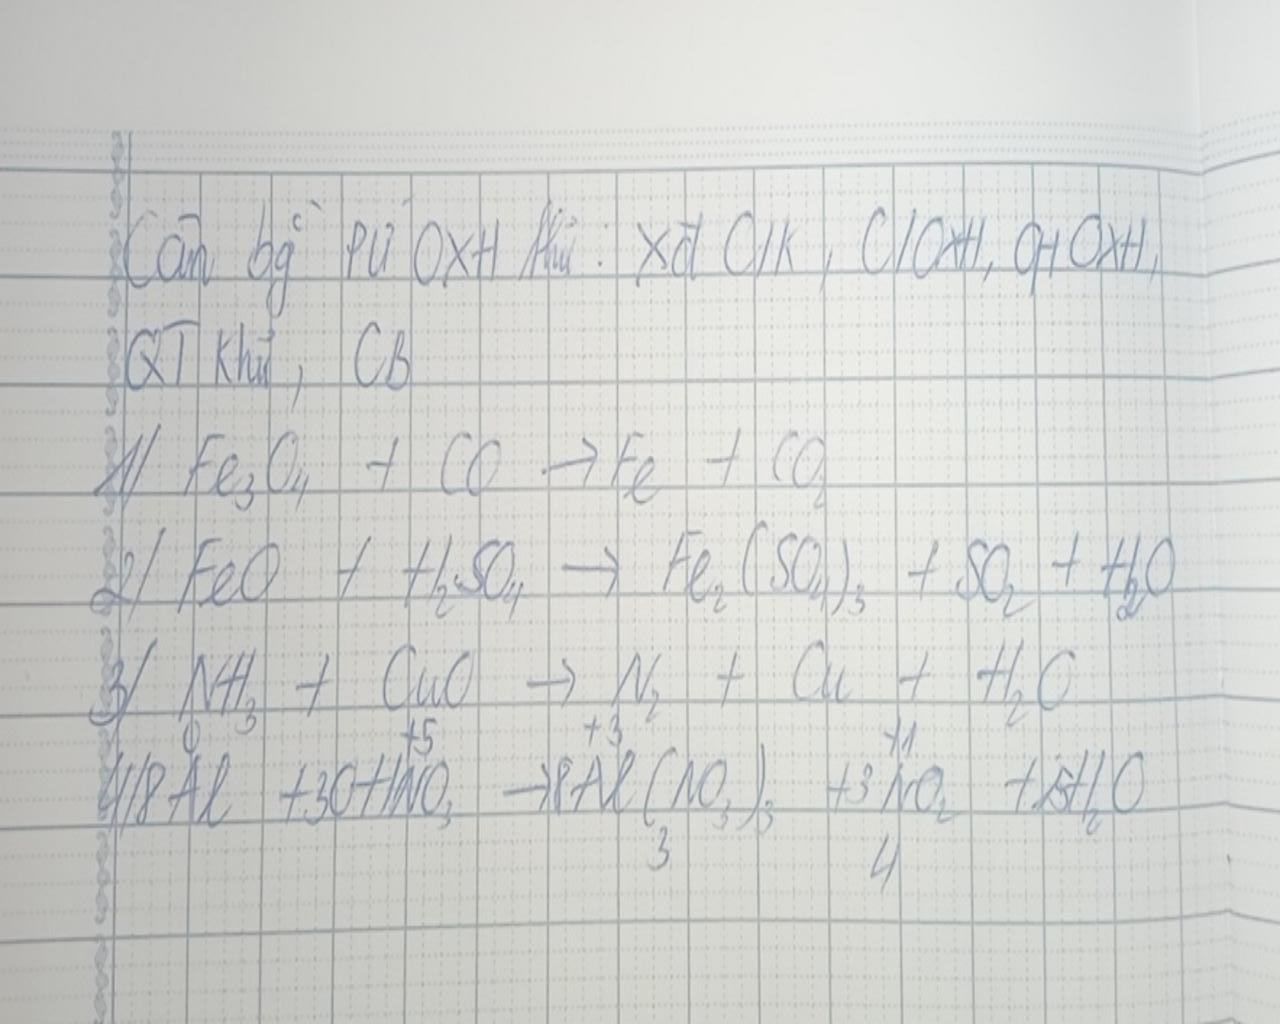 Cân bg PƯ OXH khử: Xđ C/K, C/OXH, QT OXH,
QT khử, CB
1/ Fe₃O₄ + CO → Fe + CO₂
2/ FeO + H₂SO₄ → Fe₂(SO₄)₃ + SO₂ + H₂O
3/ NH₃ + CuO → N₂ + Cu + H₂O
0 +5 +3 +1
4/ 8Al + 30HNO₃ → 8Al(NO₃)₃ + 3NO₂ + 15H₂O
3 4